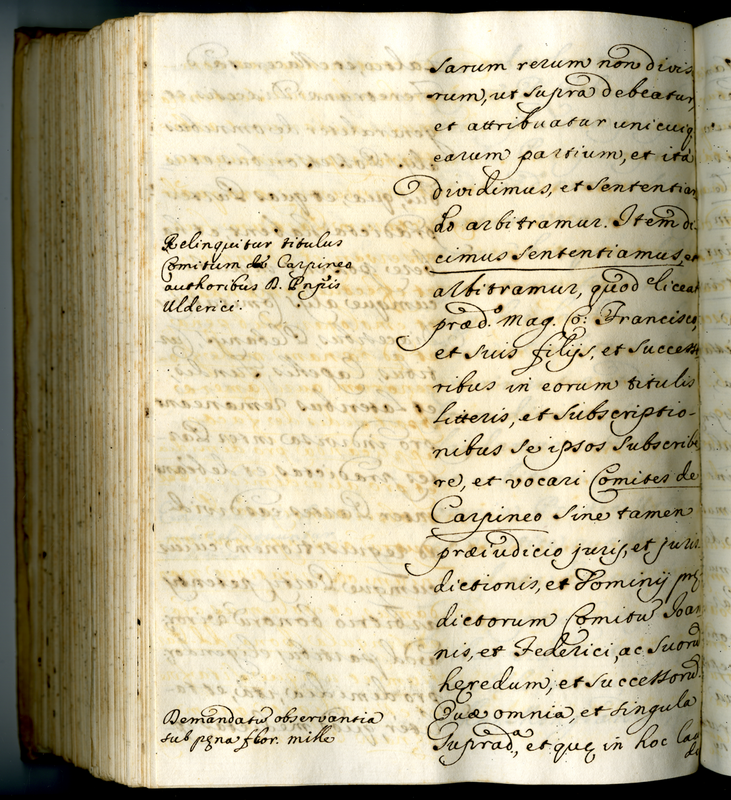 sarum rerum non divis
rum, ut supra debeatur,
et attribuatur unicuiq
earum partium, et ità
dividimus, et sententian
do arbitramur. Item di
cimus sententiamus, et
arbitramur, quod liceat
præd.º Mag. Co: Francisco,
et suis filijs, et successo
ribus in eorum titulis
litteris, et subscriptio-
nibus se ipsos subscribe
re, et vocari Comites de
Carpineo sine tamen
præiudicio juris, et juris
dictionis, et Dominij præ
dictorum Comitũ Joan
nis, et Federici, ac suorũ
heredum, et successorũ.
Quæ omnia, et singula
Suprad.ª, et quę in hoc lau
do
Relinquitur titulus
Comitum de Carpineo
authoribus D. Pnpiis
Ulderici.
Demandatur observantia
sub pęna flor. mille